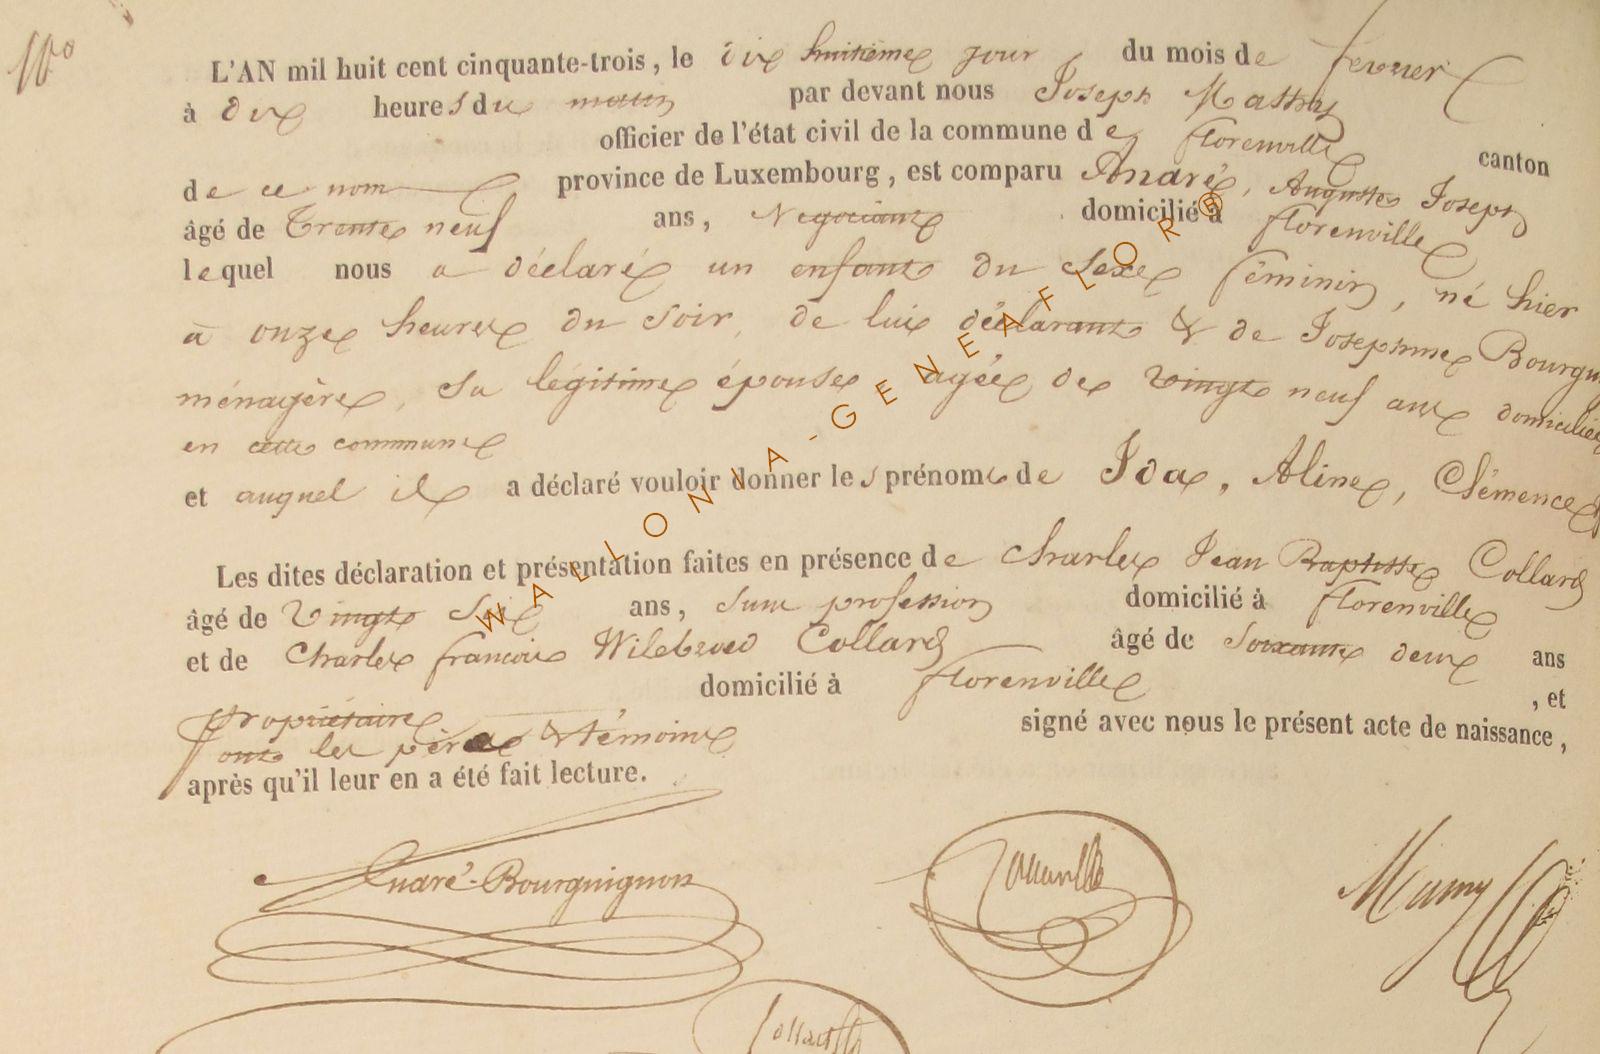 L'AN mil huit cent cinquante-trois, le dix huitième jour du mois de fevrier
à dix heures du matin par devant nous Joseph Mathy
officier de l'état civil de la commune de florenville canton
de ce nom province de Luxembourg, est comparu André, Auguste Joseph
âgé de Trente neuf ans, Negociant domicilié à florenville
lequel nous a déclaré un enfant du sexe féminin, né hier
à onze heures du soir, de lui déclarant & de Josephine Bourgui
ménagère, sa légitime épouse agée de vingt neuf ans domiciliée
en cette commune
et auquel il a déclaré vouloir donner les prénoms de Ida, Aline, Clémence
Les dites déclaration et présentation faites en présence de Charles Jean Baptiste Collard
âgé de vingt six ans, sans profession domicilié à florenville
et de Charles françois Wilebrord Collard âgé de soixante deux ans
propriétaire domicilié à florenville , et
ont les père & témoins signé avec nous le présent acte de naissance,
après qu'il leur en a été fait lecture.
André-Bourguignon
Collard
WALLONIA-GENEAFLOR®